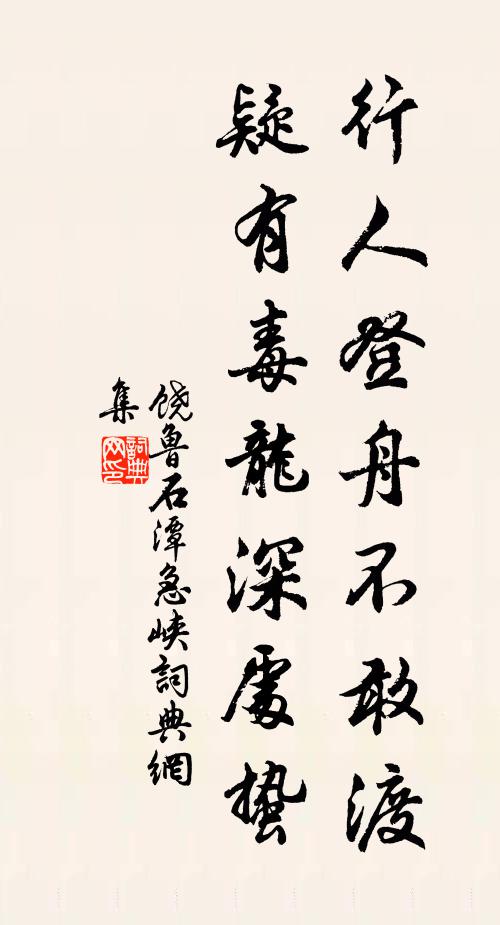 行人登舟不敢渡
疑有毒龍深處蟄
饶魯石潭急峽詞典網
集
詞典
网印